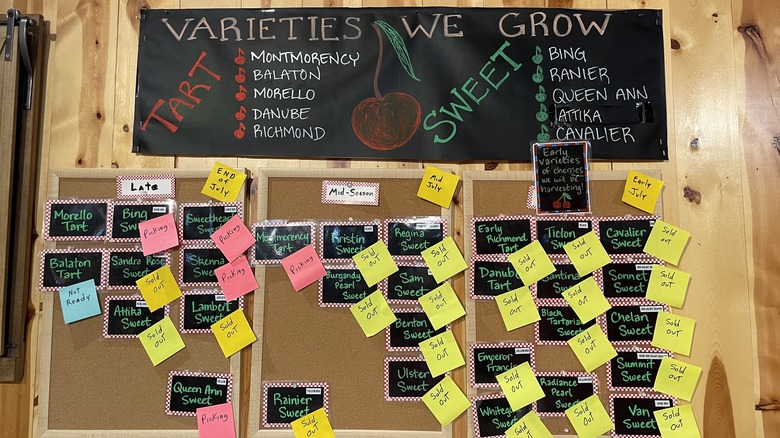 VARIETIES WE GROW
TART
MONTMORENCY
BALATON
MORELLO
DANUBE
RICHMOND
SWEET
BING
RANIER
QUEEN ANN
ATTIKA
CAVALIER
Early
varieties
of cherries
we will be
harvesting!
Late
END OF
JULY
Morello
Tart
Bing
Sweet
Picking
Sweetheart
Sweet
Picking
Balaton
Tart
NOT
READY
Sandra Rose
Sweet
Sold
out
Skeena
Sweet
Picking
Attika
Sweet
Sold
out
Lambert
Sweet
Sold
out
Queen Ann
Sweet
Picking
Mid-Season
Mid
July
Montmorency
Tart
Picking
Kristin
Sweet
Sold
out
Regina
Sweet
Sold
out
Burgundy
Pearl Sweet
Sold
out
Sam
Sweet
Sold
out
Benton
Sweet
Sold
out
Ulster
Sweet
Sold
out
Rainier
Sweet
Sold
out
Early
July
Early
Richmond
Tart
Sold
out
Ticton
Sweet
Sold
out
Cavalier
Sweet
Sold
out
Danube
Tart
Sold
out
Santina
Sweet
Sold
out
Sonnet
Sweet
Sold
out
Black
Tartarian
Sweet
Sold
out
Chelan
Sweet
Sold
out
Emperor
Francis
Sold
out
Summit
Sweet
Sold
out
Whitegold
Sweet
Sold
out
Radiance
Pearl
Sweet
Sold
out
Van
Sweet
Sold
out